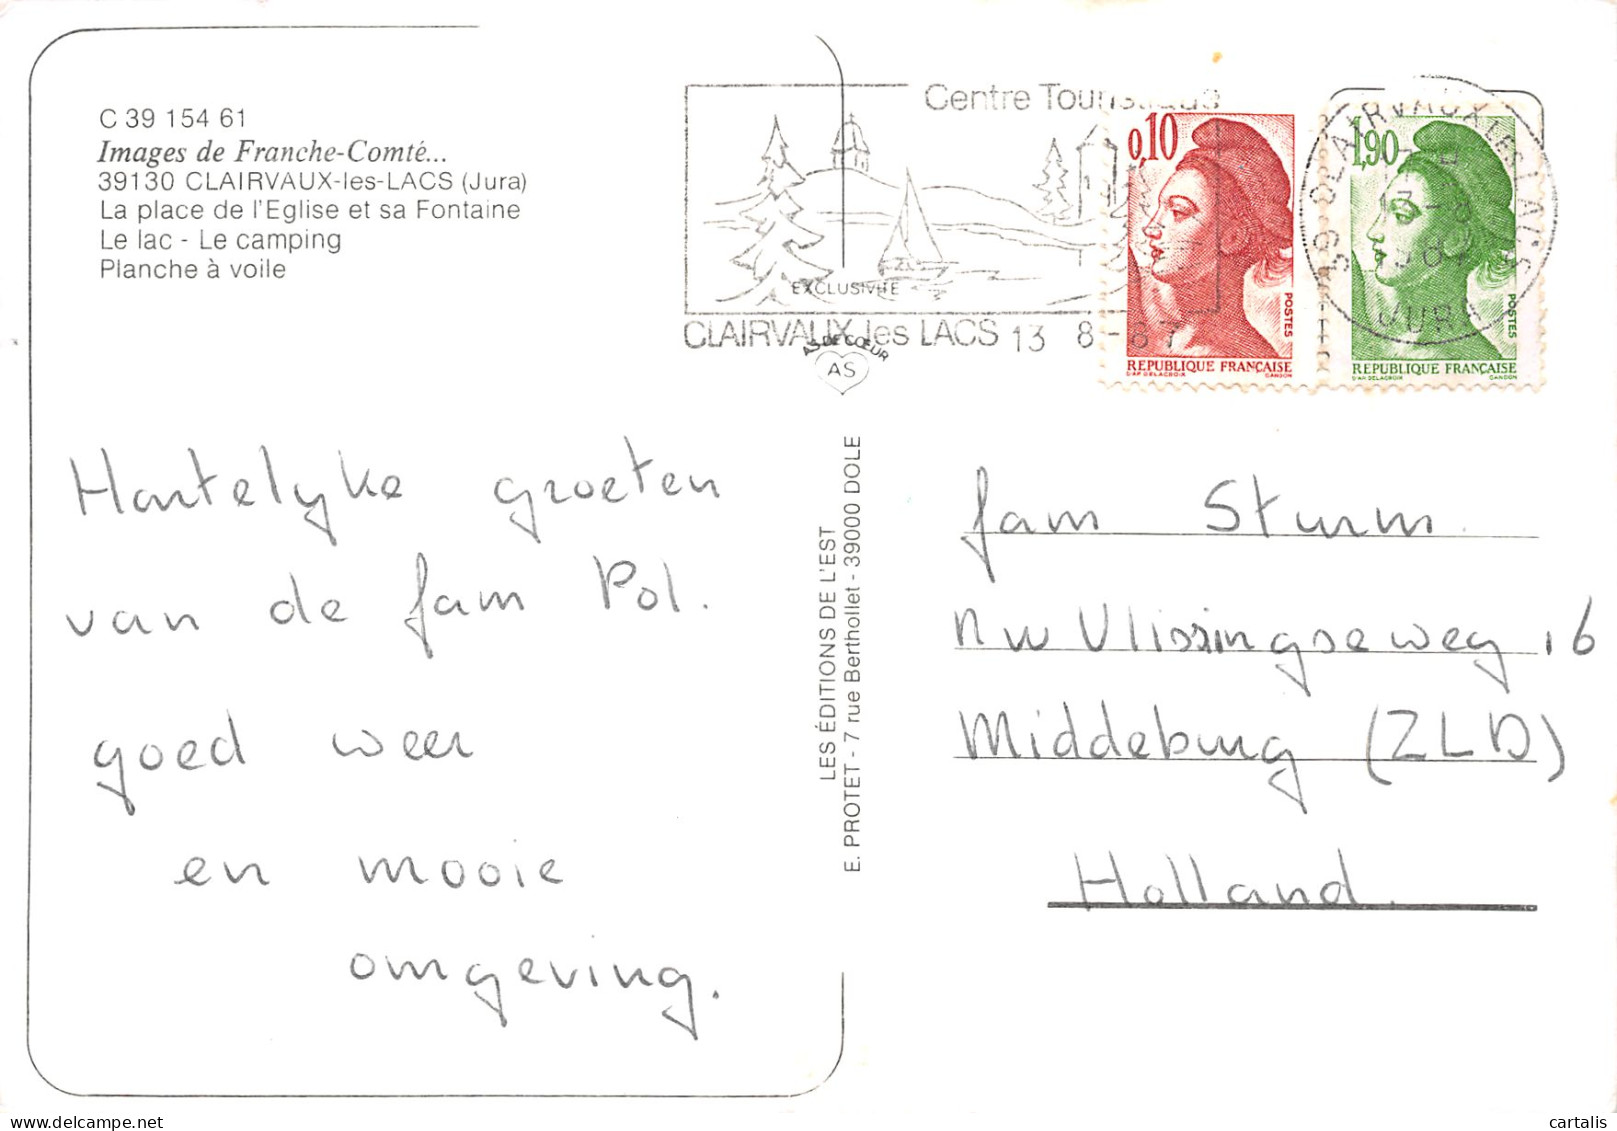 C 39 154 61
Images de Franche-Comté...
39130 CLAIRVAUX-les-LACS (Jura)
La place de l'Eglise et sa Fontaine
Le lac - Le camping
Planche à voile
Centre Touristique
EXCLUSIVITE
CLAIRVAUX les LACS 13 8-87
AS DE CŒUR
AS
0,10
POSTES
REPUBLIQUE FRANÇAISE
D'AP DELACROIX GANDON
1,90
POSTES
REPUBLIQUE FRANÇAISE
D'AP DELACROIX GANDON
39 CLAIRVAUX LES LACS
13-8
JURA
Hartelyke groeten
van de fam Pol.
goed weer
en mooie
omgeving.
LES ÉDITIONS DE L'EST
E. PROTET - 7 rue Berthollet - 39000 DOLE
fam Sturm
nw Vlissingseweg 16
Middeburg (ZLD)
Holland.
cartalis